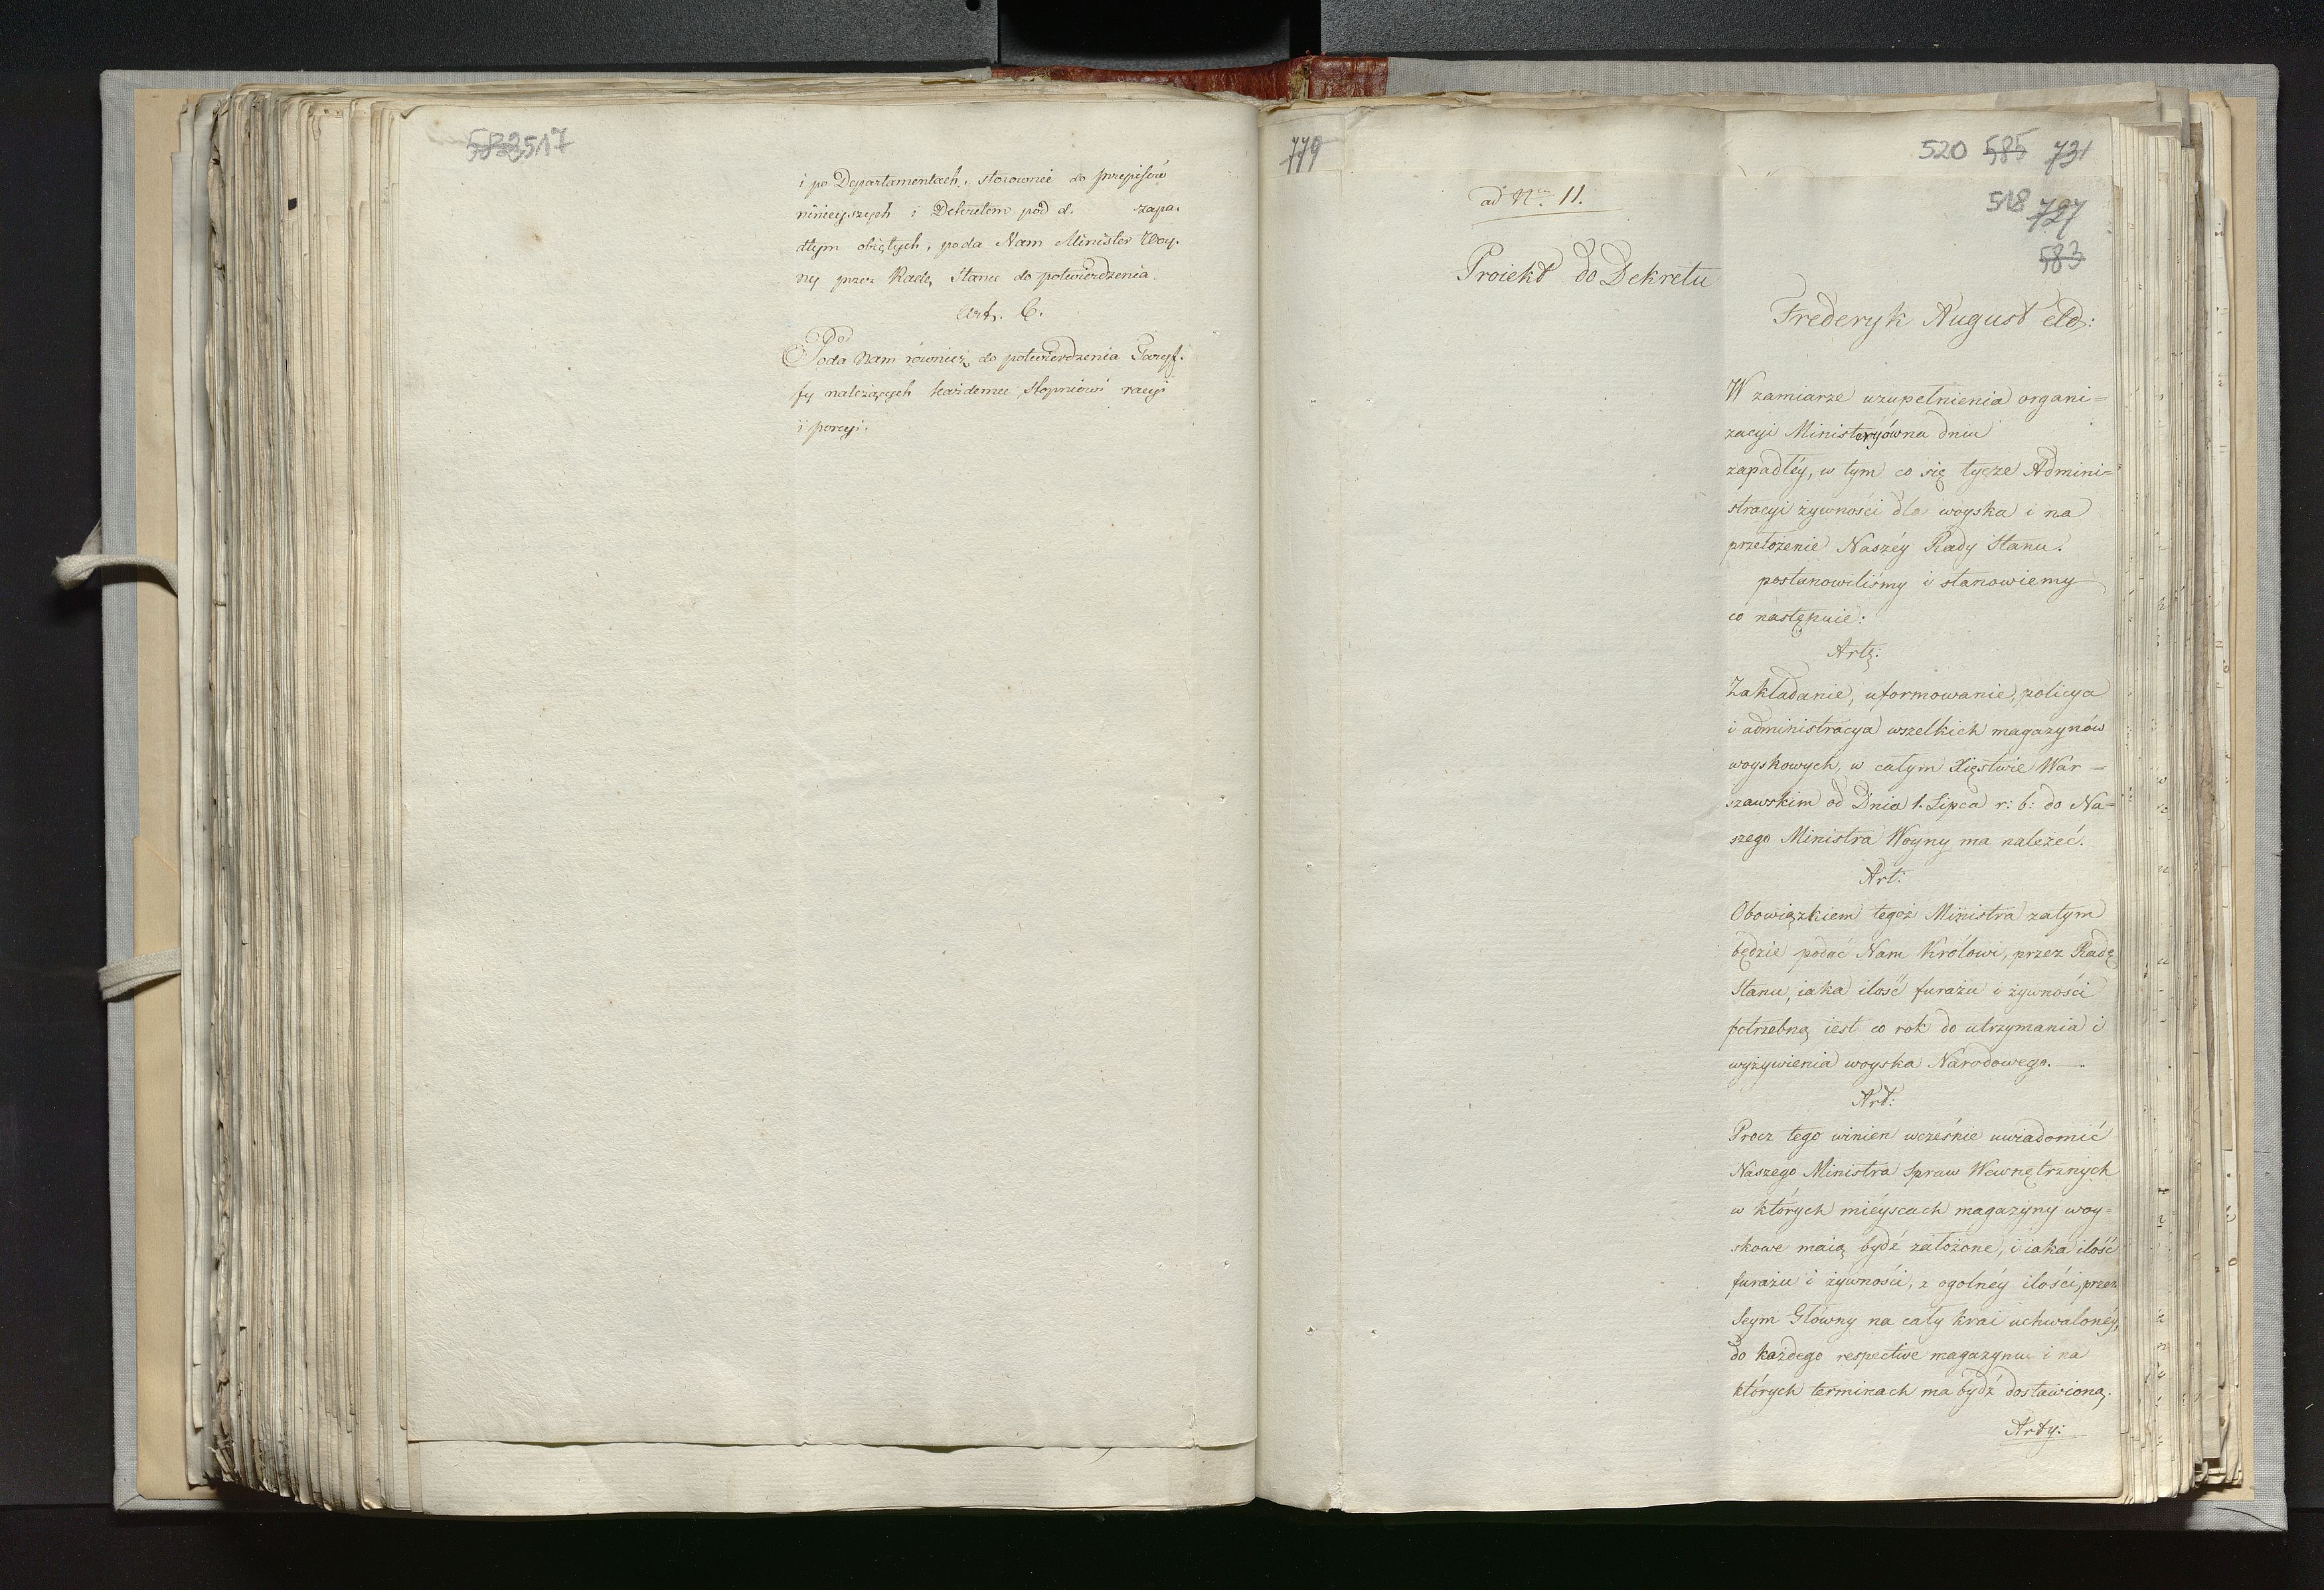 517
i po Departamentach, stosownie do przepisów
ninieyszych i Dekretem pod d. zapa-
dłym obiętych, poda Nam Minister Woy-
ny przez Radę Stanu do potwierdzenia.
Art. 6.
Poda Nam również do potwierdzenia Taryf-
fy należących każdemu stopniowi racyi
i porcyi.
779
520 585 731
518 727
583
ad Nrum 11.
Proiekt do Dekretu
Frederyk August etc:
W zamiarze uzupełnienia organi=
zacyi Ministeryów na dniu
zapadłéy, w tym co się tycze Admini=
stracyi żywności dla woyska i na
przełożenie Naszéy Rady Stanu.
postanowiliśmy i stanowiemy
co następuie:
Art:
Zakładanie, uformowanie, policya
i administracya wszelkich magazynów
woyskowych, w całym Xięstwie War=
szawskim od Dnia 1. Lipca r: b: do Na=
szego Ministra Woyny ma należeć.
Art:
Obowiązkiem tegoż Ministra zatym
będzie podać Nam Królowi, przez Radę
Stanu, iaka ilość furażu i żywności
potrzebną iest co rok do utrzymania i
wyżywienia woyska Narodowego.
Art:
Procz tego winien wcześnie uwiadomić
Naszego Ministra Spraw Wewnętrznych
w których mieyscach magazyny woy=
skowe maią bydź założone, i iaka ilość
furażu i żywności, z ogolnéy ilości, przez
Seym Główny na cały krai uchwalonéy,
do każdego respective magazynu i na
których terminach ma bydź dostawioną.
Arty: